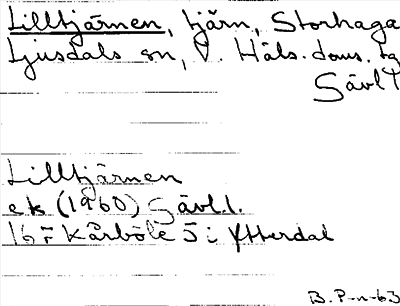 Lilltjärnen, tjärn, Storhaga
Ljusdals sn, V. Häls. doms. tg
Gävl. l
Lilltjärnen
ek (1960) Gävl.l.
16 Kårböle 5 i Ytterdal
B. P-n-63